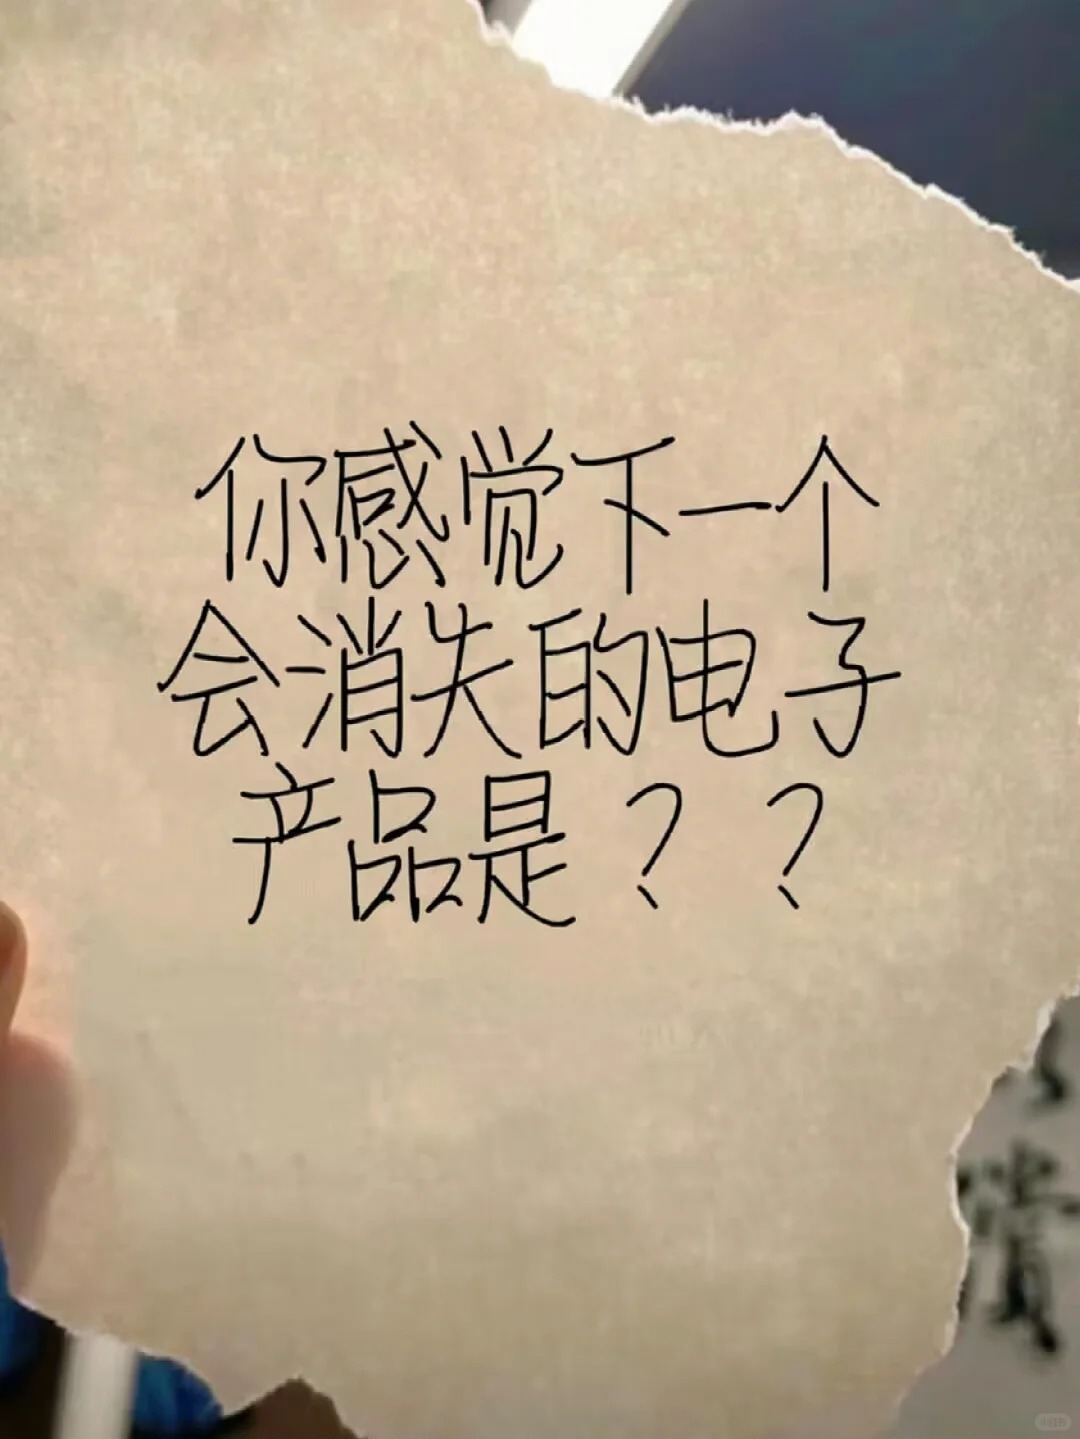 你感觉下一个
会消失的电子
产品是？？
赏